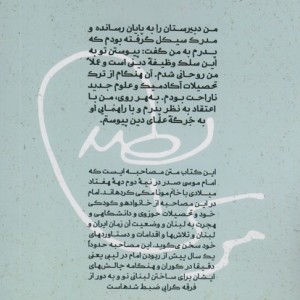 من دبیرستان را به پایان رسانده و
مدرک سیکل گرفته بودم که
پدرم به من گفت: پیوستن تو به
این سلک وظیفهٔ دینی است و عملاً
من روحانی شدم. آن هنگام از ترک
تحصیلات آکادمیک و علوم جدید
ناراحت بودم. به‌هر روی، من با
اعتقاد به نظر پدرم و با راهنمایی او
به جرگهٔ علمای دین پیوستم.
این کتاب متن مصاحبه‌ایست که
امام موسی صدر در نیمهٔ دوم دههٔ هفتاد
میلادی با خانم مونا مکی کرده‌اند. امام
در این مصاحبه از خانواده و کودکی
خود و تحصیلات حوزوی و دانشگاهی و
هجرت به لبنان و وضعیت آن زمان ایران و
لبنان و تلاش‌ها و اقدامات و دستاوردهای
خود سخن می‌گوید. این مصاحبه حدوداً
یک سال پیش از ربودن امام در لیبی یعنی
دقیقاً در کوران و هنگامهٔ چالش‌های
ایشان برای ساختن لبنانی نو و به دور از
فرقه گرایی ضبط شده‌است